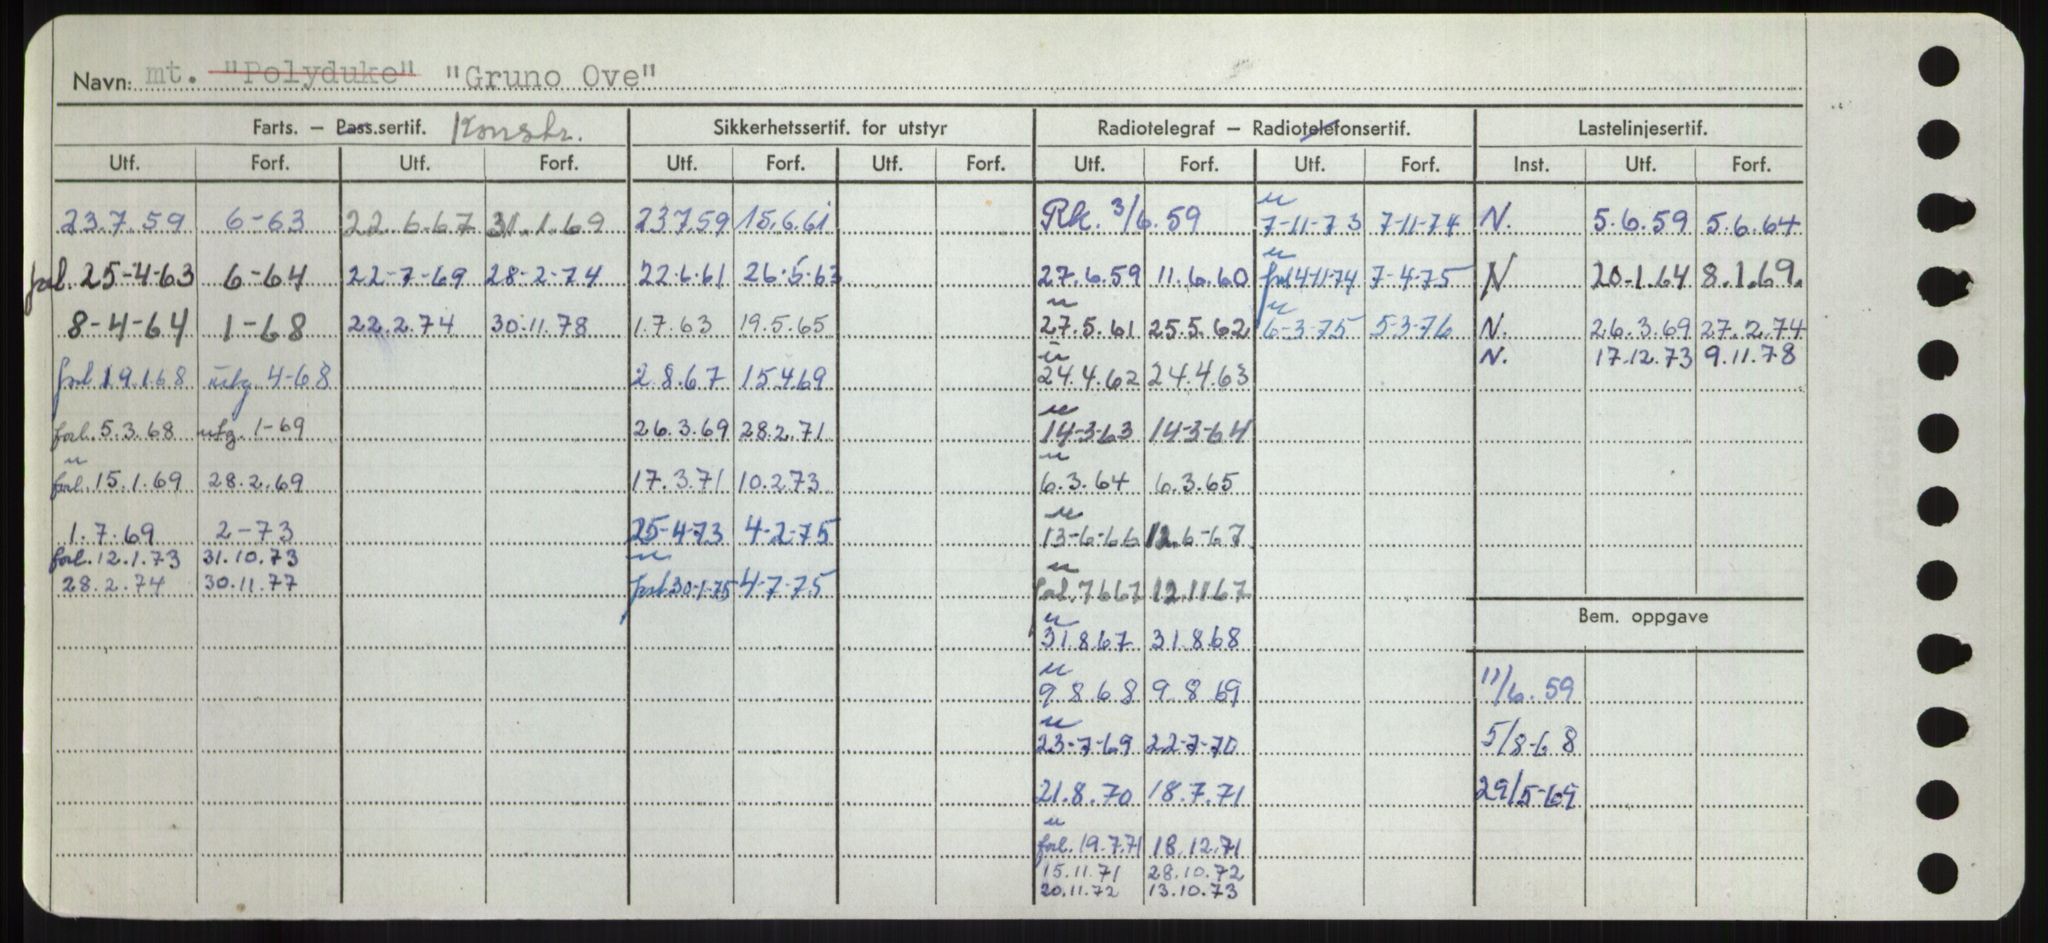 Navn: mt. "Polyduke" "Gruno Ove"
Farts. – Pass.sertif. Konstr. Sikkerhetssertif. for utstyr Radiotelegraf – Radiotelefonsertif. Lastelinjesertif.
Utf. Forf. Utf. Forf. Utf. Forf. Utf. Forf. Utf. Forf. Utf. Forf. Inst. Utf. Forf.
23.7.59 6-63 22.6.67 31.1.69 23.7.59 15.6.61 Rk. 3/6.59 u 7-11-73 7-11-74 N. 5.6.59 5.6.64
forl. 25-4-63 6-64 22-7-69 28-2-74 22.6.61 26.5.63 27.6.59 11.6.60 u forl 4-11-74 7-4-75 N 20.1.64 8.1.69.
8-4-64 1-68 22.2.74 30.11.78 1.7.63 19.5.65 u 27.5.61 25.5.62 u 6-3-75 5-3-76 N. 26.3.69 27.2.74
N. 17.12.73 9.11.78
forl. 19.1.68 utg. 4-68 2.8.67 15.4.69 u 24.4.62 24.4.63
forl. 5.3.68 utg. 1-69 26.3.69 28.2.71 u 14-3-63 14-3-64
u forl. 15.1.69 28.2.69 17.3.71 10.2.73 u 6.3.64 6.3.65
1.7.69 2-73 25-4-73 4-2-75 u 13-6-66 12.6-67
forl. 12.1.73 31.10.73
28.2.74 30.11.77 u forl. 30-1-75 4-7-75 u forl. 7.6.67 12.11.67
Bem. oppgave
u 31.8.67 31.8.68
u 9.8.68 9.8.69 11/6.59
u 23-7-69 22-7-70 5/8-68
21.8.70 18.7.71 29/5-69
u forl. 19.7.71 18.12.71
15.11.71 28.10.72
20.11.72 13.10.73